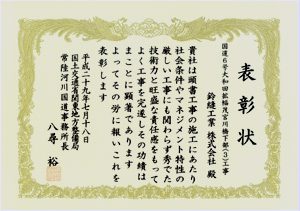 表彰状
国道6号大和田拡幅茂宮川橋下部(3)工事
鈴縫工業 株式会社 殿
貴社は頭書工事の施工にあたり
社会条件やマネジメント特性の
厳しい工事にも関わらず秀でた
技術力と旺盛な責任感をもって
よく工事を完遂しその功績は
まことに顕著であります
よってその労に報いこれを
表彰します
平成二十九年七月十八日
国土交通省関東地方整備局
常陸河川国道事務所長
八尋 裕